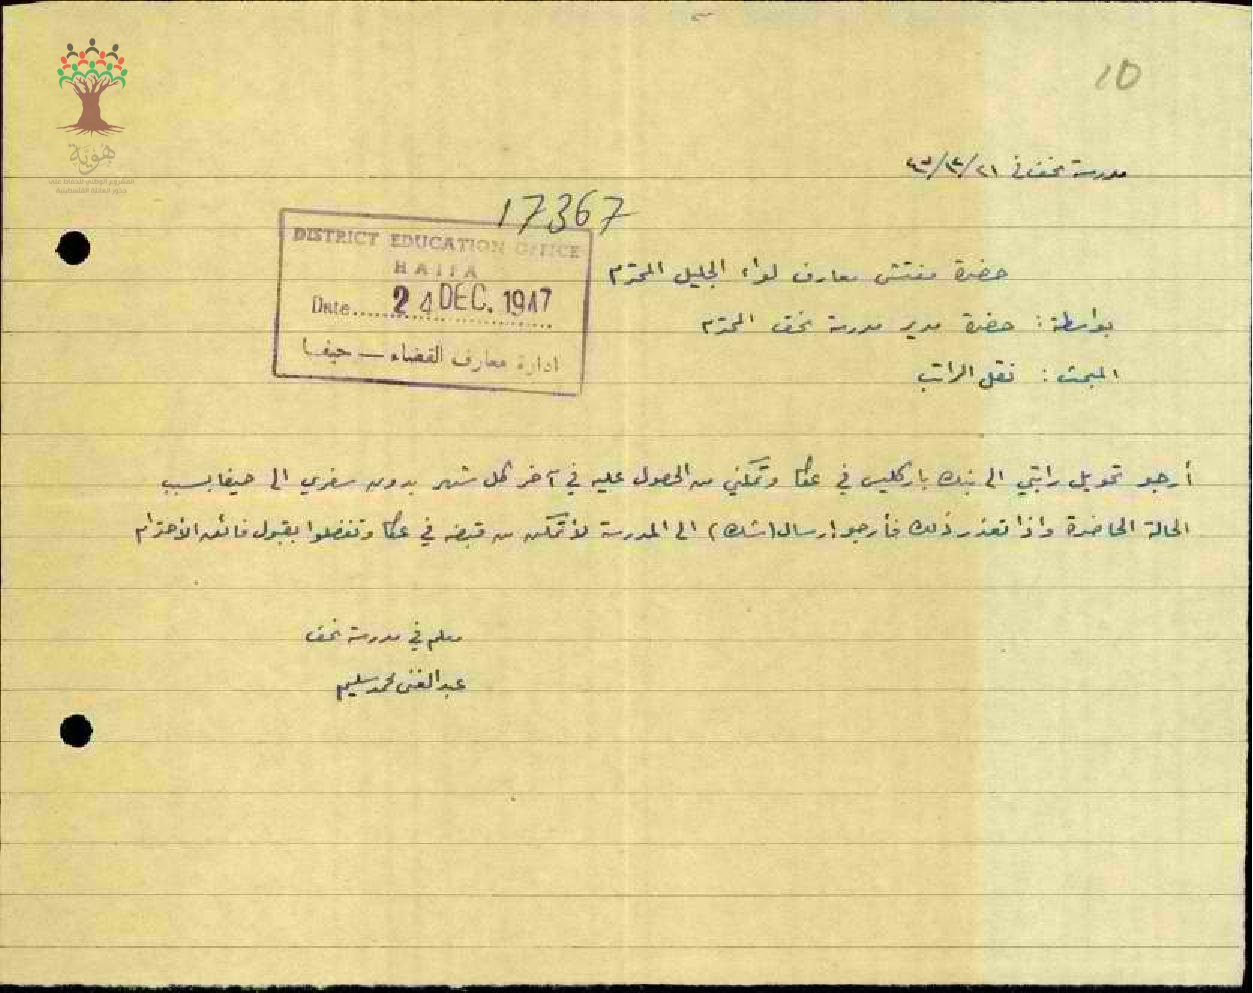 10
مدرسة نحف في ٢١/١٢/٤٧
17367
DISTRICT EDUCATION OFFICE
HAIFA
Date..... 24 DEC. 1947
ادارة معارف القضاء — حيفا
حضرة مفتش معارف لواء الجليل المحترم
بواسطة: حضرة مدير مدرسة نحف المحترم
المبحث: نقل الراتب
أرجو تحويل راتبي الى بنك باركليس في عكا وتمكني من الحصول عليه في آخر كل شهر بدون سفري الى حيفا بسبب
الحالة الحاضرة واذا تعذر ذلك فأرجو ارسال (شك) الى المدرسة لأتمكن من قبضه في عكا وتفضلوا بقبول فائق الأحترام
معلم في مدرسة نحف
عبد الغني محمد سليم
هوية
المشروع الوطني للحفاظ على
جذور العائلة الفلسطينية